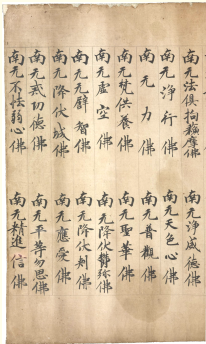 南无法俱拘獼摩佛
南无淨行佛
南无力佛
南无梵供養佛
南无虛空佛
南无辟智佛
南无降伏城佛
南无戒切德佛
南无不怯弱心佛
南无淨威德佛
南无天色心佛
南无普觀佛
南无聖華佛
南无降伏佛
南无降伏刺佛
南无應愛佛
南无平等勿思佛
南无精進信佛